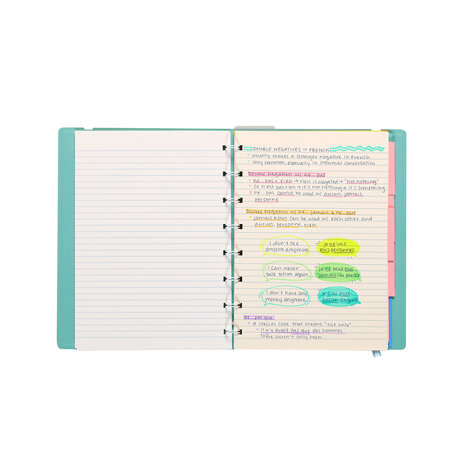 DOUBLE NEGATIVES in FRENCH
• Usually makes a stronger negative in French
• Very common, especially in informal conversation
Double Negation w/ ne... pas
ne... pas + rien → rien is negated → "not nothing"
ce n'est pas rien → it's not nothing → it's something
ne... pas cannot be used w/ aucun, jamais,
personne
Double Negation w/ ne... jamais & ne... plus
jamais/plus can be used w/ each other and
aucun, personne, rien.
I don't see
anyone anymore
je ne vois
plus personne
I can never
talk to him again
je ne peux plus
jamais lui parler
I don't have any
money anymore
je n'ai plus
aucun argent
Ne... pas que
• A special case that means "not only"
• Il n'y avait pas que des hommes.
There weren't only men.